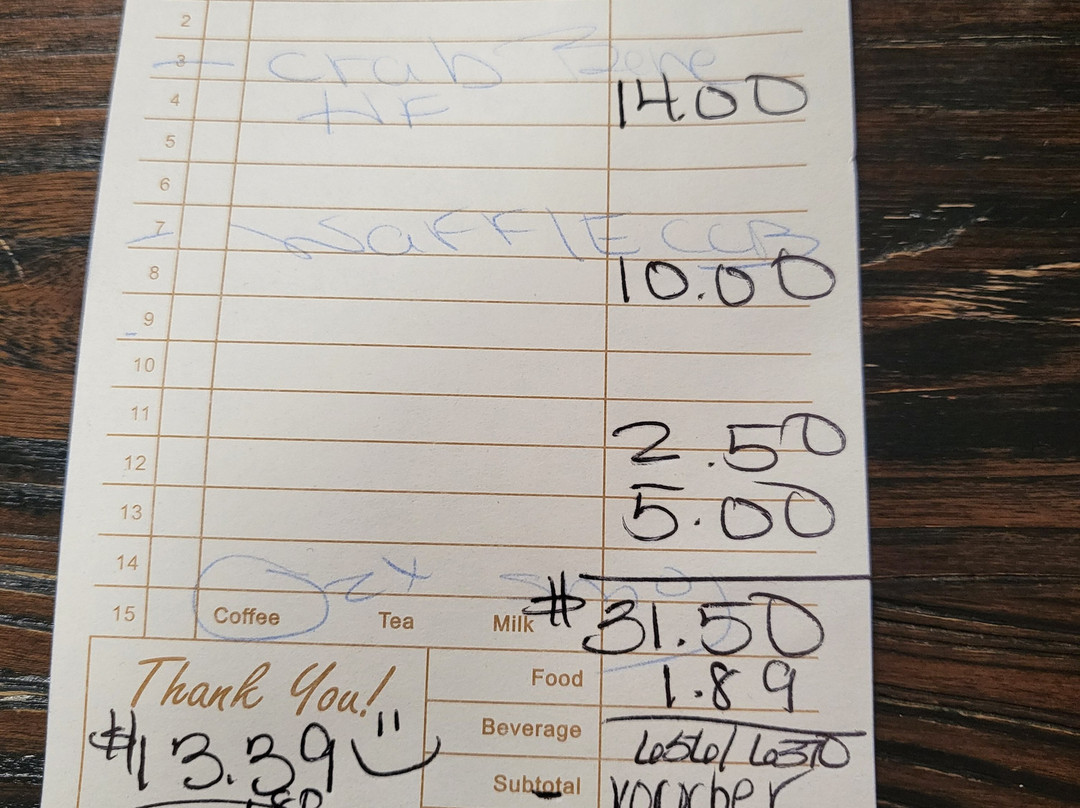 2
3 crab Bene
4 HF 14.00
5
6
7 WAFFLE CCB
8 10.00
9
10
11
12 2.50
13 5.00
14
15 Coffee Tea Milk #31.50
Thank You! Food 1.89
Beverage
$13.39 Subtotal